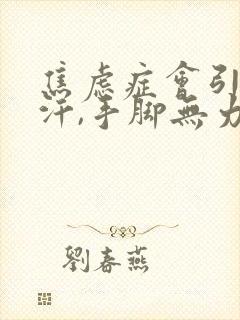 焦虑症會引
汗,手脚無力
劉春燕